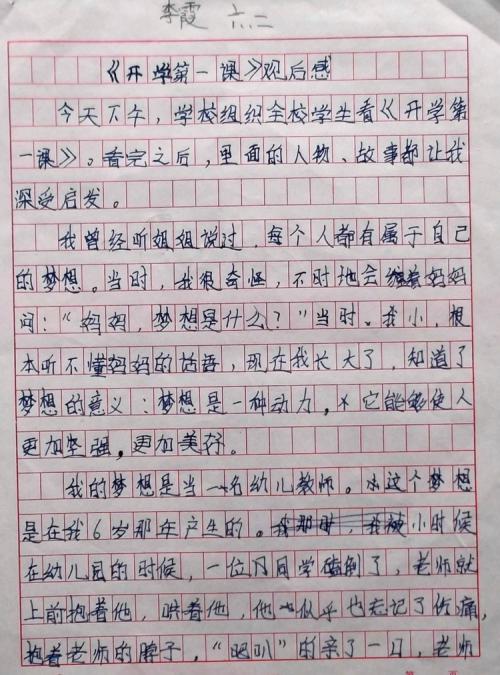 李霞 六.二
《开学第一课》观后感
今天下午，学校组织全校学生看《开学第
一课》。看完之后，里面的人物、故事都让我
深受启发。
我曾经听姐姐说过，每个人都有属于自己
的梦想。当时，我很奇怪，不时地会缠着妈妈
问：“妈妈，梦想是什么？”当时。我小，根
本听不懂妈妈的话语，现在我长大了，知道了
梦想的意义：梦想是一种动力，它能够使人
更加坚强，更加美好。
我的梦想是当一名幼儿教师。这个梦想
是在我6岁那年产生的。小时候
在幼儿园的时候，一位同学碰倒了，老师就
上前抱着他，哄着他，他似乎也忘记了伤痛，
抱着老师的脖子，“吧叭”的亲了一口，老师